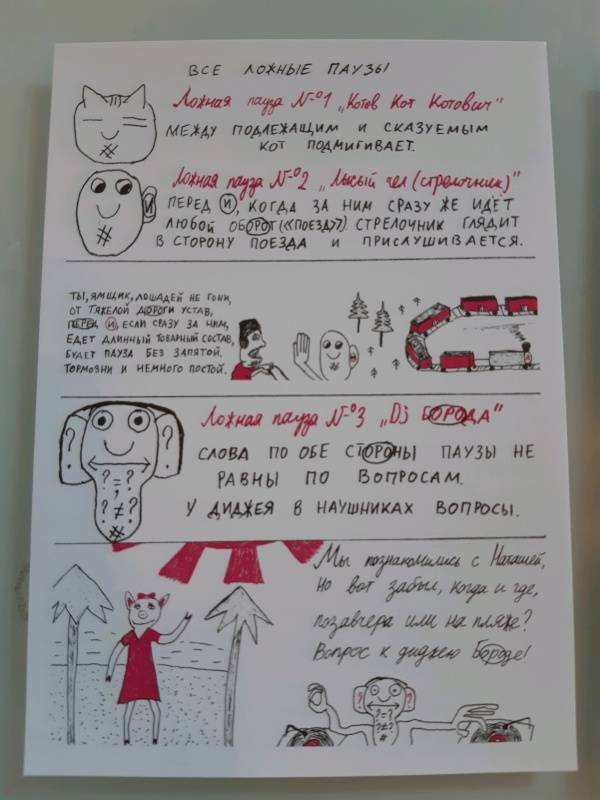 ВСЕ ЛОЖНЫЕ ПАУЗЫ
Ложная пауза №1 „Котов Кот Котович"
МЕЖДУ ПОДЛЕЖАЩИМ И СКАЗУЕМЫМ
КОТ ПОДМИГИВАЕТ.
Ложная пауза №2 „Лысый чел (стрелочник)"
И
ПЕРЕД И, КОГДА ЗА НИМ СРАЗУ ЖЕ ИДЁТ
ЛЮБОЙ ОБОРОТ(«ПОЕЗД»). СТРЕЛОЧНИК ГЛЯДИТ
В СТОРОНУ ПОЕЗДА И ПРИСЛУШИВАЕТСЯ.
ТЫ, ЯМЩИК, ЛОШАДЕЙ НЕ ГОНИ,
ОТ ТЯЖЕЛОЙ ДОРОГИ УСТАВ,
ПЕРЕД И, ЕСЛИ СРАЗУ ЗА НИМ,
ЕДЕТ ДЛИННЫЙ ТОВАРНЫЙ СОСТАВ,
БУДЕТ ПАУЗА БЕЗ ЗАПЯТОЙ.
ТОРМОЗНИ И НЕМНОГО ПОСТОЙ.
Ложная пауза №3 „Dj БОРОДА"
СЛОВА ПО ОБЕ СТОРОНЫ ПАУЗЫ НЕ
РАВНЫ ПО ВОПРОСАМ.
У ДИДЖЕЯ В НАУШНИКАХ ВОПРОСЫ.
? ?
?=?
,
?≠?
#
Мы познакомились с Наташей,
Но вот забыл, когда и где,
позавчера или на пляже?
Вопрос к диджею Бороде!
? ?
?=?
?≠?
#